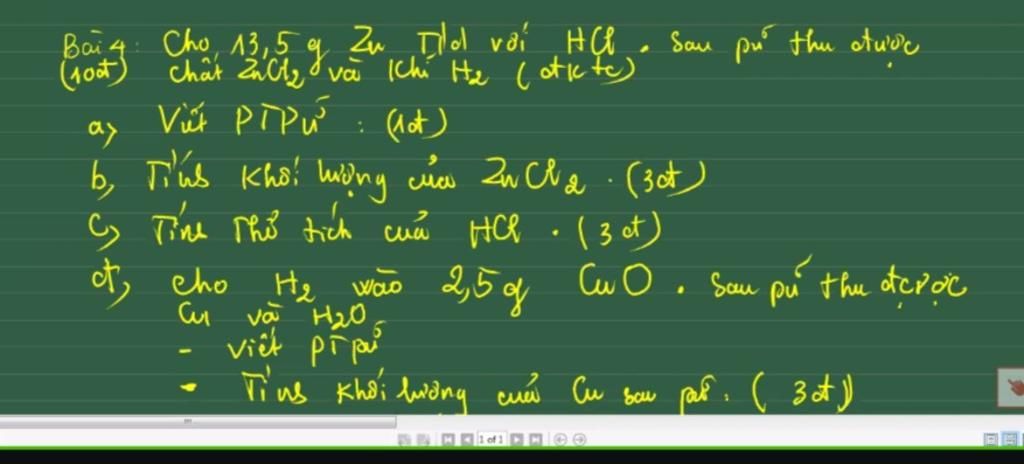 Bài 4: Cho 13,5 g Zn T/d với HCl. Sau pứ thu được
(10đ) chất ZnCl2 và khí H2 (đktc)
a, Viết PTPứ : (1đ)
b, Tính khối lượng của ZnCl2. (3đ)
c, Tính Thể tích của HCl. (3đ)
d, cho H2 vào 2,5g CuO. Sau pứ thu được
Cu và H2O
- Viết PTpứ
- Tính khối lượng của Cu sau pứ. (3đ)
1 of 1